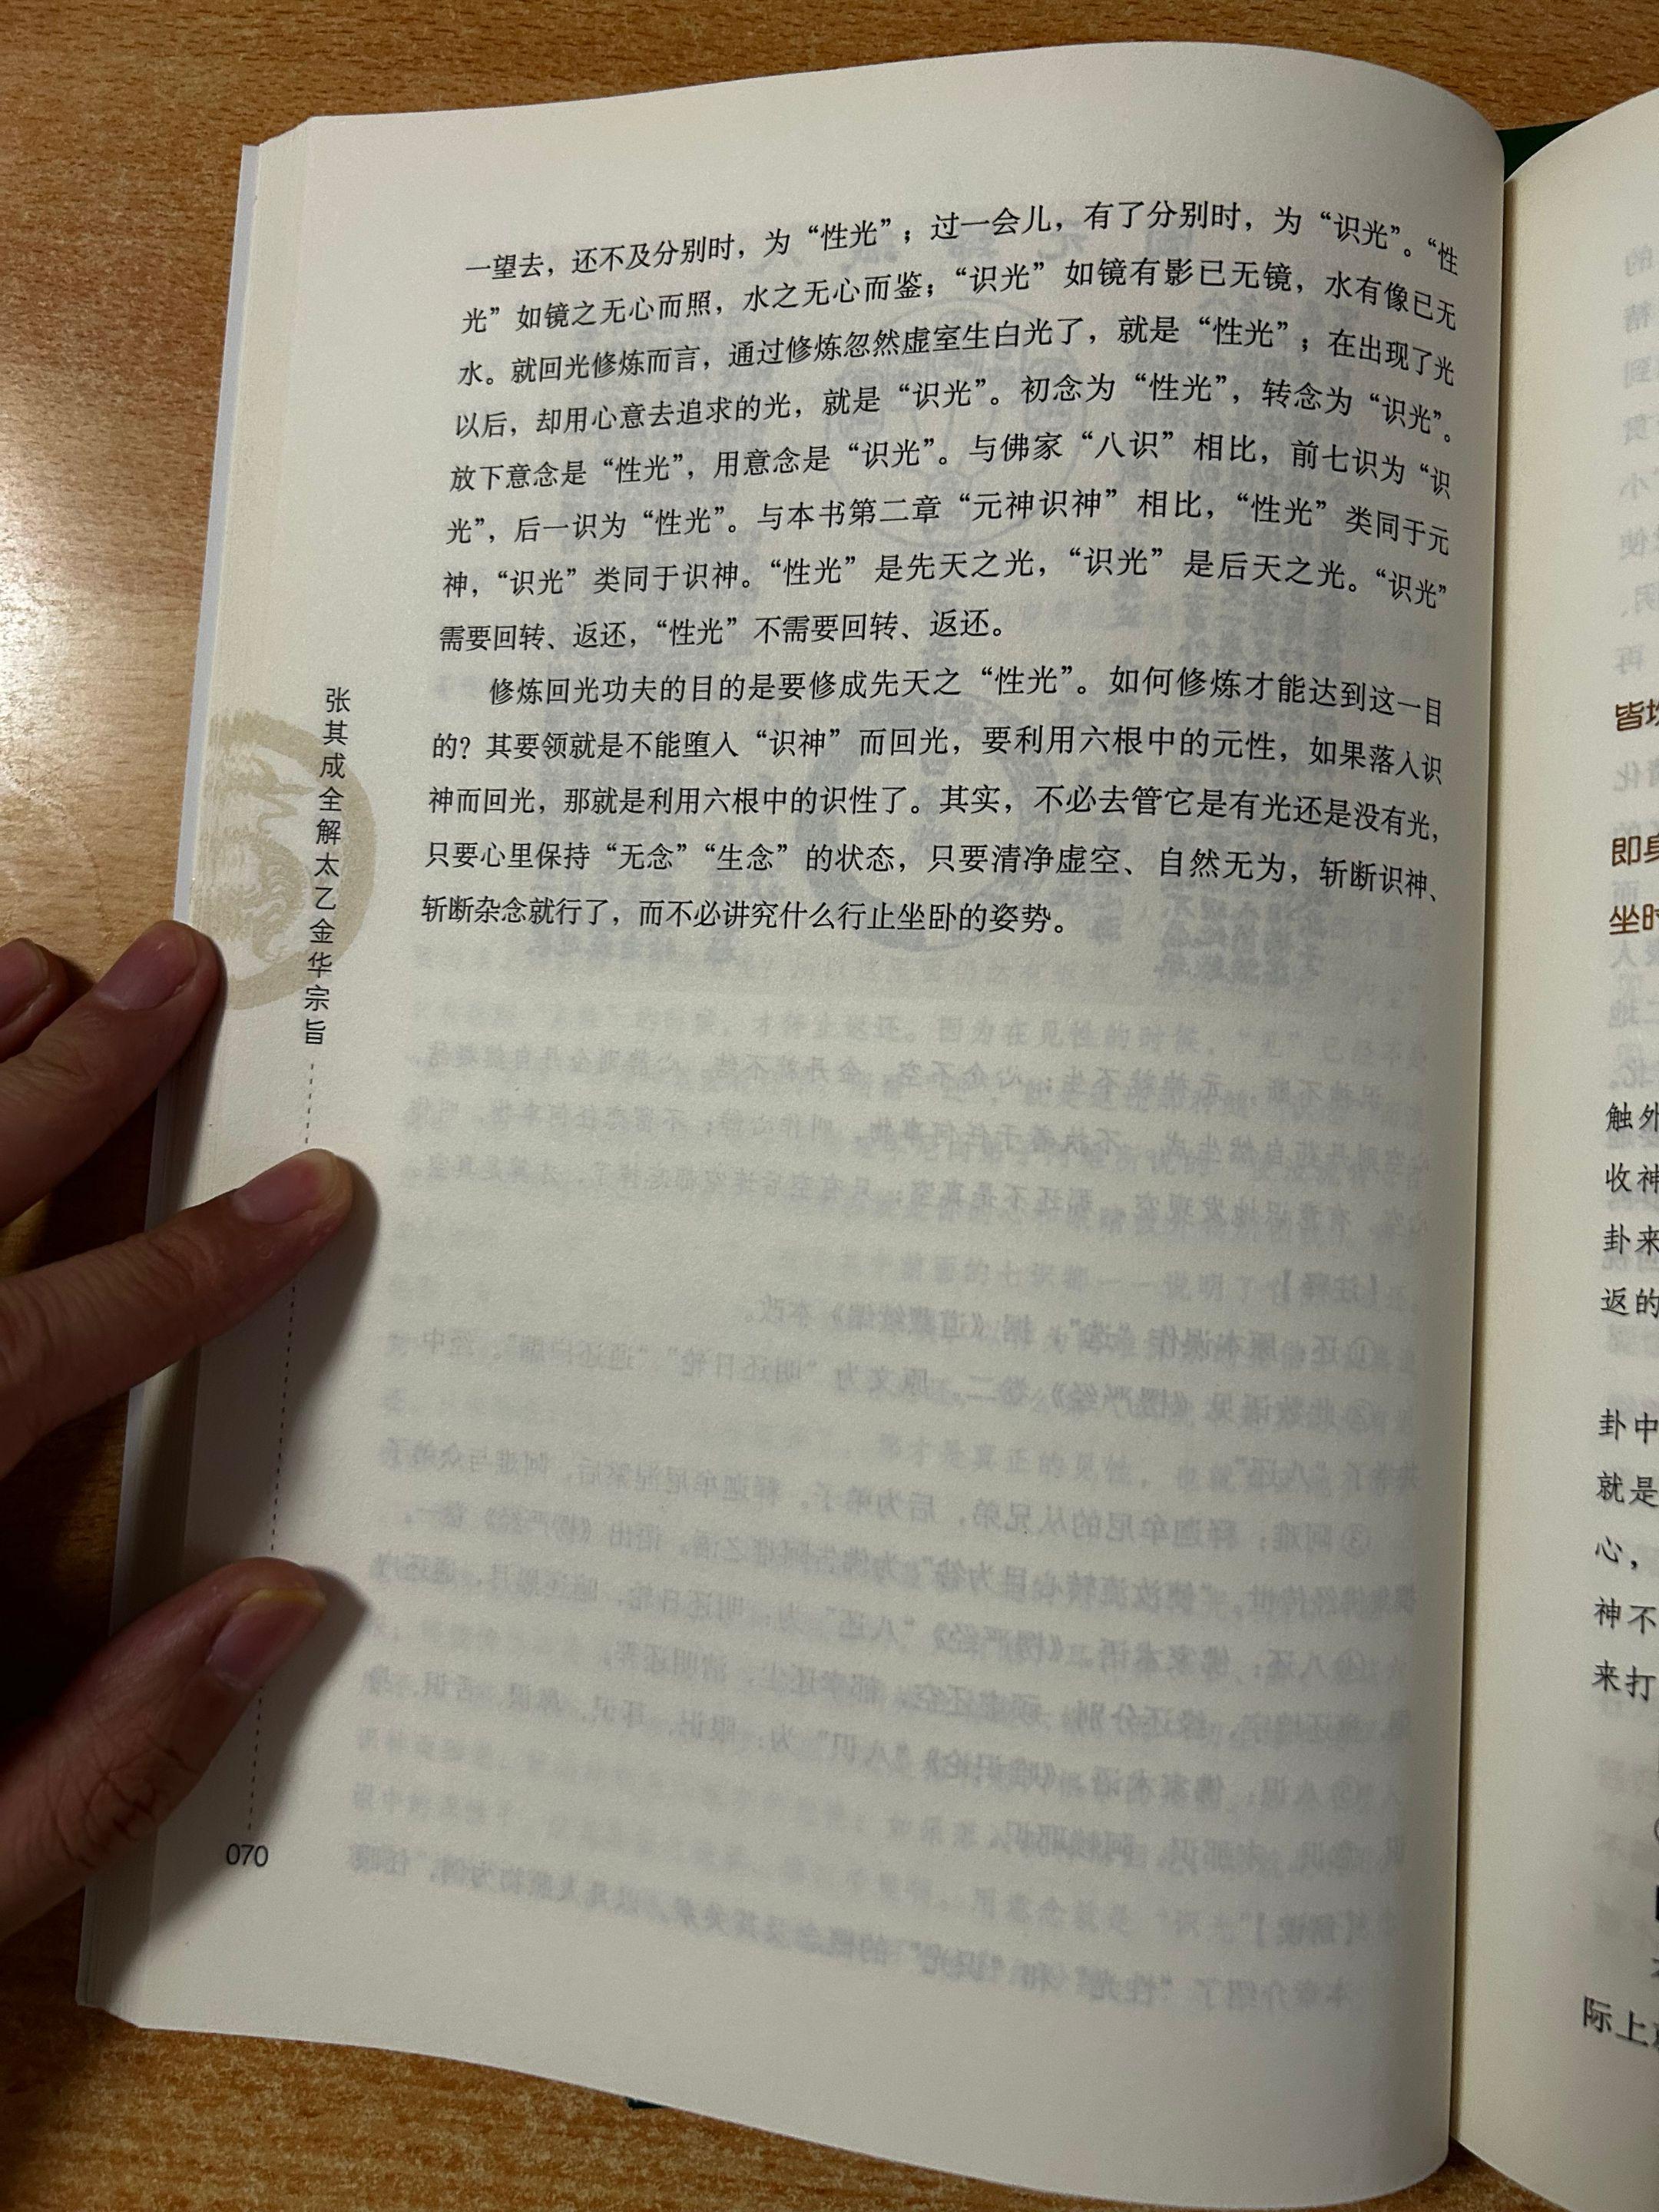 一望去，还不及分别时，为“性光”；过一会儿，有了分别时，为“识光”。“性
光”如镜之无心而照，水之无心而鉴；“识光”如镜有影已无镜，水有像已无
水。就回光修炼而言，通过修炼忽然虚室生白光了，就是“性光”；在出现了光
以后，却用心意去追求的光，就是“识光”。初念为“性光”，转念为“识光”。
放下意念是“性光”，用意念是“识光”。与佛家“八识”相比，前七识为“识
光”，后一识为“性光”。与本书第二章“元神识神”相比，“性光”类同于元
神，“识光”类同于识神。“性光”是先天之光，“识光”是后天之光。“识光”
需要回转、返还，“性光”不需要回转、返还。
修炼回光功夫的目的是要修成先天之“性光”。如何修炼才能达到这一目
的？其要领就是不能堕入“识神”而回光，要利用六根中的元性，如果落入识
神而回光，那就是利用六根中的识性了。其实，不必去管它是有光还是没有光，
只要心里保持“无念”“生念”的状态，只要清净虚空、自然无为，斩断识神、
斩断杂念就行了，而不必讲究什么行止坐卧的姿势。
张其成全解太乙金华宗旨
070
皆
即身
坐时
触外
收神
卦来
返的
卦中
就是
心，
神不
来打
际上